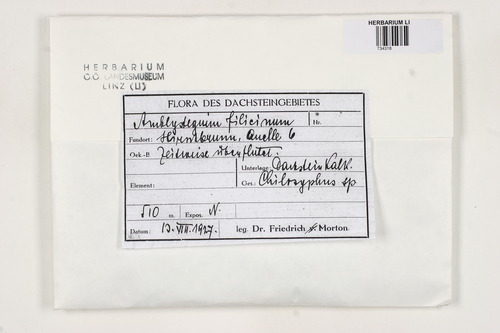 HERBARIUM LI
734318
HERBARIUM
OÖ LANDESMUSEUM
LINZ (LI)
FLORA DES DACHSTEINGEBIETES
Amblystegium filicinum Nr.
Fundort: Hirschbrunn, Quelle 6
Oek.-B. Zeitweise überflutet.
Unterlage: Dachstein Kalk.
Element: Ges.: Chiloscyphus sp
510 m. Expos. N.
Datum: 13. VIII. 1927. leg. Dr. Friedrich Morton.